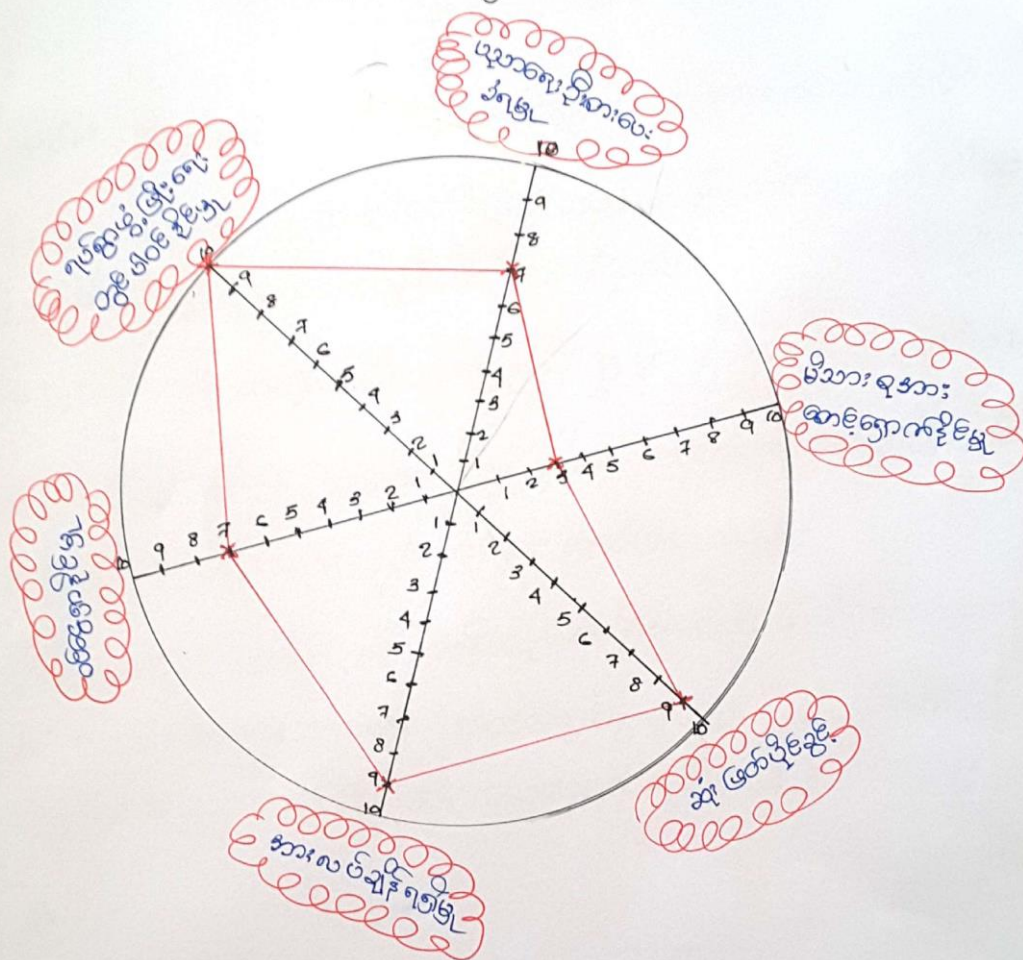 ပညာရေးဦးစားပေး
ခံရမှု
ရပ်ရွာဖွံ့ဖြိုးရေး
တွင်ပါဝင်နိုင်မှု
မိသားစုအား
ထောက်ပံ့နိုင်မှု
ဆုံးဖြတ်ပိုင်ခွင့်
အားလပ်ချိန်ရရှိမှု
10
9
8
7
6
5
4
3
2
1
10
9
8
7
6
5
4
3
2
1
1
2
3
4
5
6
7
8
9
10
10
9
8
7
6
5
4
3
2
1
1
2
3
4
5
6
7
8
9
10
1
2
3
4
5
6
7
8
9
10